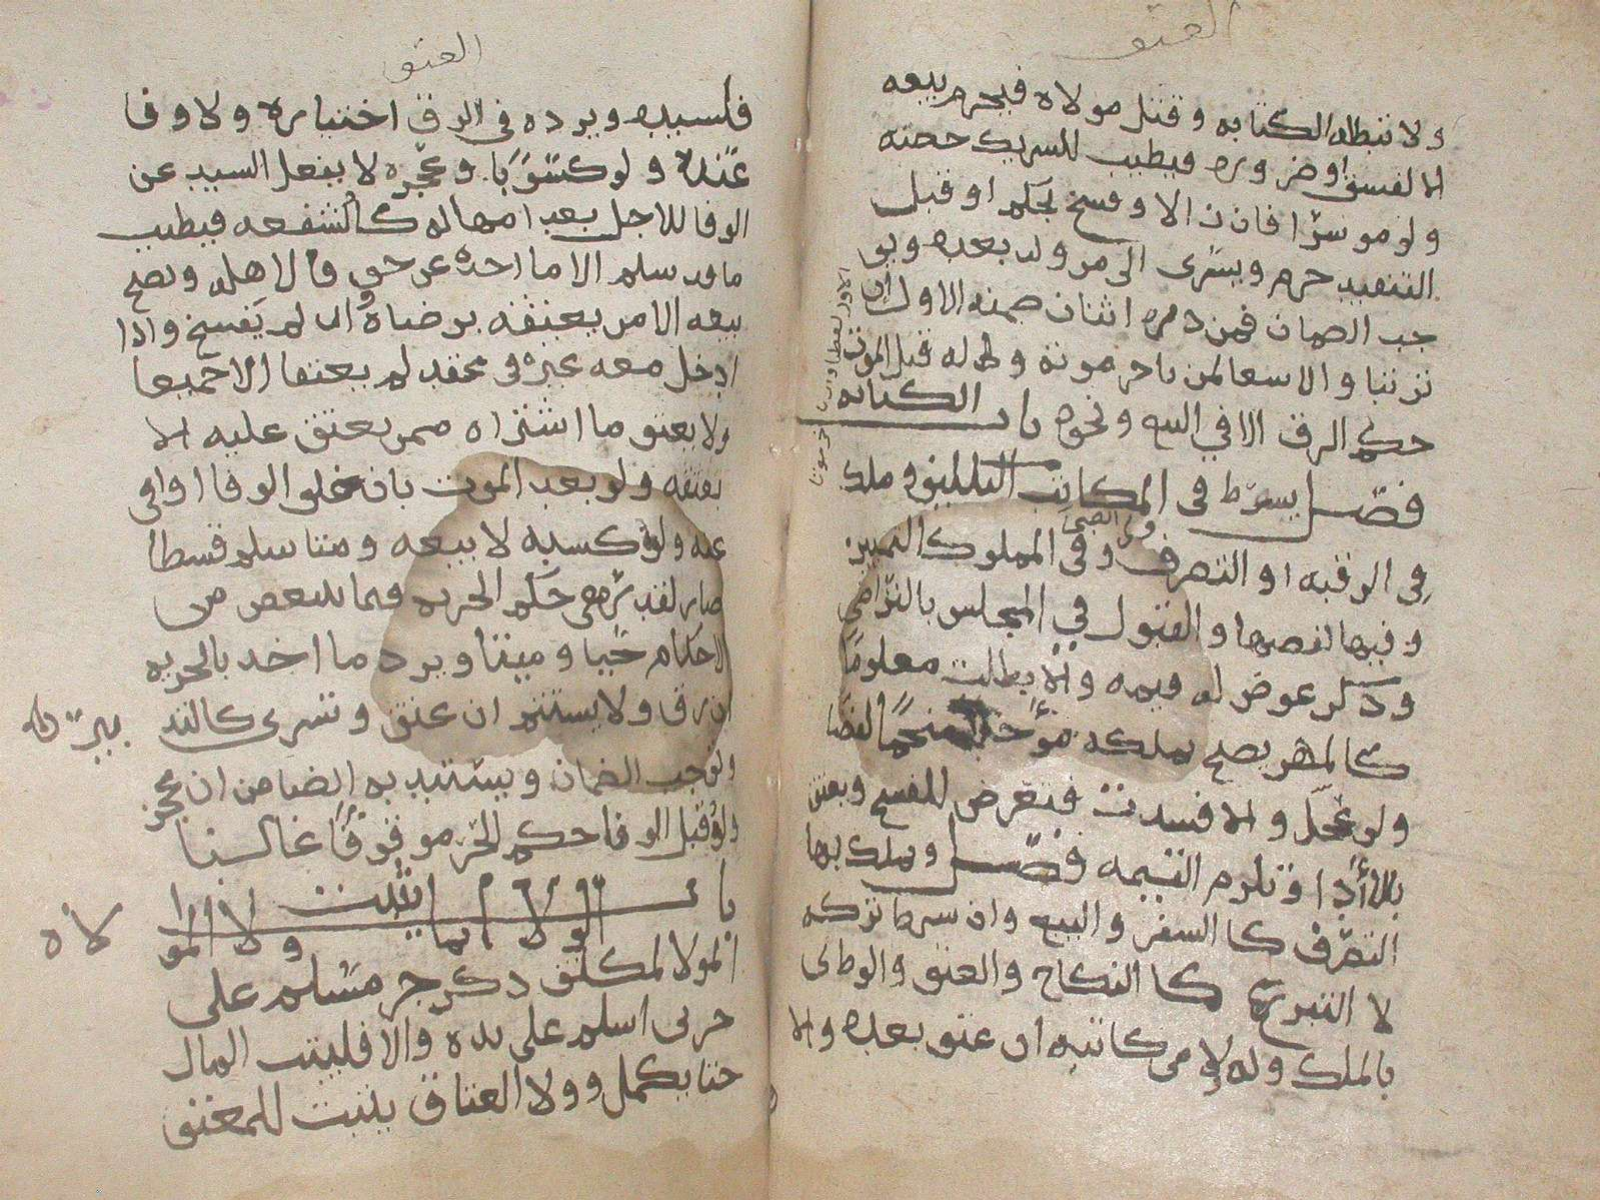 العتق
ولا تبطله الكتابه وقتل مولاه فيحرم بيعه
الا لفسق او ضرورة فيطيب للشريك حصته
ولو موسرًا فان زالا وفسخ بحكم او قبل
التنفيد حرم ويسرى الى من ولد بعده ويو
جب الضمان فمن دبره اثنان ضمنه الاول ان
ترتبا والا سعا لمن تاخر موته وله قبل الموت
حكم الرق الا في البيع ونحوه باب الكتابه
فصل يشرط في المكاتب التكليف وملك
في الرقبه او التصرف وفى المملوك التمييز
وفيها لفظها والقبول في المجلس بالتراضي
وذكر عوض له قيمه والا بطلت معلومًا
كالمهر يصح تملكه مؤجلا منجمًا لفظا
ولو عجل والا فسدت فيعرض للفسخ ويعتق
بالأدا وتلزم القيمه فصل ويملك بها
التصرف كالسفر والبيع وان شرط تركه
لا التبرع كالنكاح والعتق والوطى
بالملك وله ولا من كاتبه ان عتق بعده والا
العتق
فلسيده ويرده في الرق اختياره ولا وفا
عنده ولو كسوبًا وعجزه لا بفعل السيد عن
الوفا للاجل بعد امهاله كالشفعه فيطيب
ما قد سلم الا ما اخذه عن حق فلاهله ويصح
بيعه الا من يعتقه برضاه وان لم يفسخ واذا
ادخل معه غيره في عقد لم يعتقا الا جميعا
ولا يعتق ما اشتراه ممن يعتق عليه الا
بعتقه ولو بعد الموت بان خلف الوفا او اوفي
عنه وله كسبه لا بيعه ومتا سلم قسطا
صار لقدره حكم الحريه فيما يتبعض من
الاحكام حيًا وميتا ويرد ما اخذ بالحريه
ان رق ولا يستتم ان عتق وتسرى كالتد
بير
ويوجب الضمان ويستبد به الضامن ان عجز
وله قبل الوفا حكم الحر موقوفًا غالبا
باب الولاء انما يثبت ولا الموا
لاه
المولا لمكلف ذكر حر مسلم على
حربى اسلم على يده والا فلبيت المال
حتا يكمل وولا العتاق يثبت للمعتق